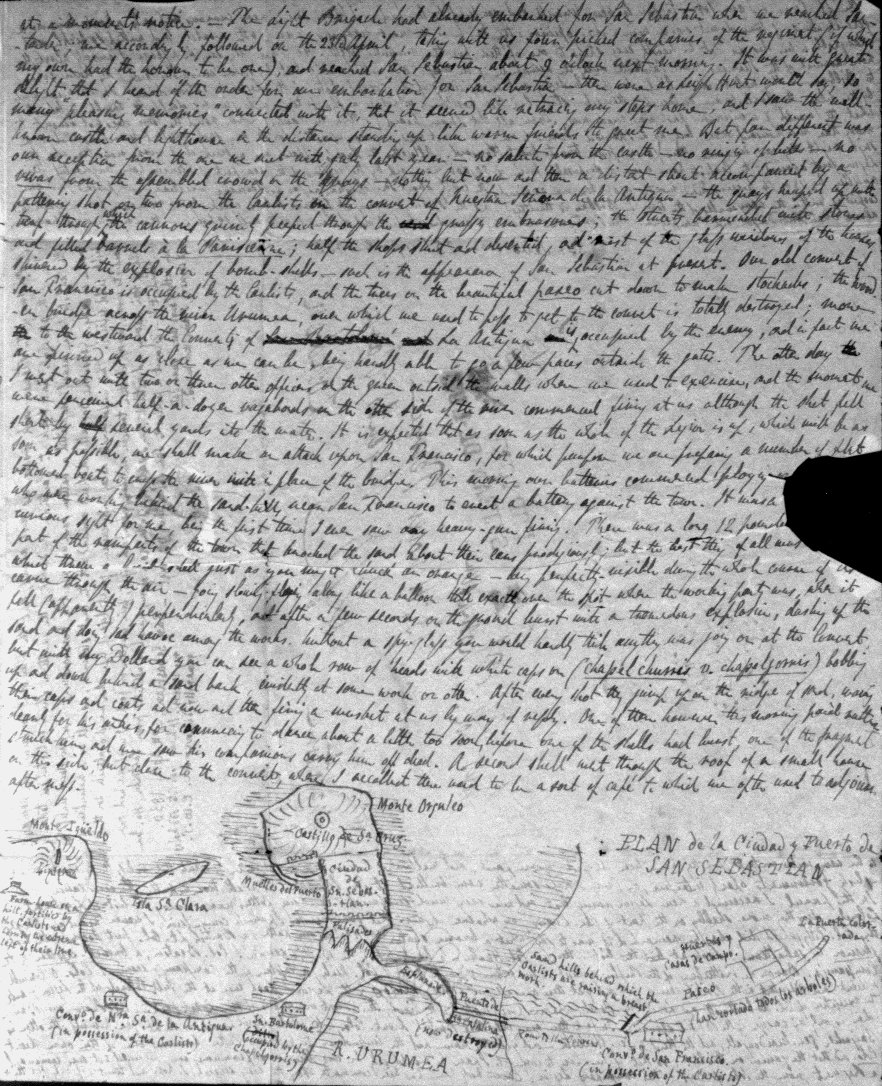 at a moment's notice. — The light Brigade had already embarked for San Sebastian when we reached San-
tander: we accordingly followed on the 23rd April, taking with us four picked companies of the regiment (of which
my own had the honour to be one), and reached San Sebastian about 9 o'clock next morning. It was with great
delight that I heard of the order for our embarkation for San Sebastian — there were as Leigh Hunt would say, so
many "pleasing memories" connected with it, that it seemed like retracing my steps home — and I saw the well
known castle and lighthouse in the distance standing up like warm friends to greet me. But far different was
our reception from the one we met with last year — no salute from the castle — no ringing of bells — no
vivas from the assembled crowd on the quays — nothing but now and then a distant shout accompanied by a
pattering shot or two from the Carlists in the convent of Nuestra Señora de la Antigua — the quays heaped up with
through which the cannons grimly peeped through the grassy embrasures, the streets barricaded with stones
and filled barrels à la Parisienne; half the shops shut and deserted, and most of the glass windows of the houses
shivered by the explosion of bomb-shells — such is the appearance of San Sebastian at present. Our old convent of
San Francisco is occupied by the Carlists, and the trees on the beautiful paseo cut down to make stockades; the wood-
en bridge across the river Urumea, over which we used to pass to get to the convent is totally destroyed; more
to the westward the Convent of La Antigua is occupied by the enemy, and in fact we
are hemmed up as close as we can be, being hardly able to go a few paces outside the gates. The other day
I went out with two or three other officers on the green outside the walls where we used to exercise, and the moment we
were perceived half-a-dozen vagabonds on the other side of the river commenced firing at us although the shot fell
short by several yards into the water. It is expected that as soon as the whole of the Legion is up, which will be as
soon as possible, we shall make an attack upon San Francisco, for which purpose we are preparing a number of flat
bottomed boats to cross the river with in place of the bridge. This morning our batteries commenced playing
who were working behind the sand-hills near San Francisco to erect a battery against the town. It was a
curious sight for me, being the first time I ever saw any heavy-gun firing. There was a long 12 pounder
part of the ramparts of the town that knocked the sand about their ears prodigiously; but the best thing of all was
which threw a shell just as you might chuck an orange — being perfectly visible during the whole course of its
career through the air — going slowly along like a balloon till exactly over the spot where the working party was, when it
fell (apparently) perpendicularly, and after a few seconds on the ground burst with a tremendous explosion, dashing up the
sand and doing sad havoc among the works. Without a spy-glass you would hardly think anything was going on at the Convent
but with my Dollond you can see a whole row of heads with white caps on (chapel churris v. chapelgorris) bobbing
up and down behind a sand bank, evidently at some work or other. After every shot they jump up on the ridge of sand, waving
their caps and coats and now and then firing a musket at us by way of reply. One of them however this morning paid rather
dearly for his antics, for commencing to dance about a little too soon, before one of the shells had burst, one of the fragments
struck him, and we saw his companions carry him off dead. A second shell went through the roof of a small house
on this side, but close to the convent, where I recollect there used to be a sort of café to which we often used to adjourn
after mess.
Monte Orgullo
Monte Igueldo
Castillo de Sa. Cruz
PLAN de la Ciudad y Puerto de
SAN SEBASTIAN
Muelles del Puerto
Ciudad
de
Sn. Sebas-
tian
Isla Sa. Clara
Palisades
Farm house on a
hill, fortified by
the Carlists and
left of their line.
La Puerta Color-
ada
Huertas y
Casas de Campo.
Sand hills behind which the
Carlists are raising a breast-
work
Paseo
(han cortado todos los arboles)
Puente de
Sa. Catalina
(now destroyed)
Convo. de Na. Sa. de la Antigua
(in possession of the Carlists)
San Bartolome
Occupied by the
Chapelgorris
R. URUMEA
Convo. de San Francisco.
(in possession of the Carlists)